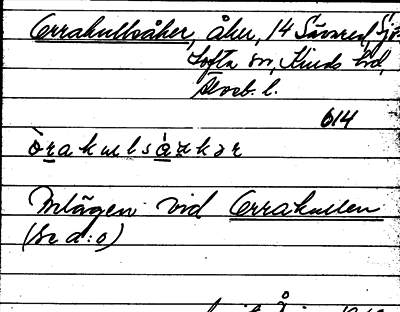 Orrakullsåker, åker, 14 Sävared, Sjö-
tofta sn, Kinds hd,
Älvsb. l.
614
òrakulså̀kər
Belägen vid Orrakullen
(se d:o)